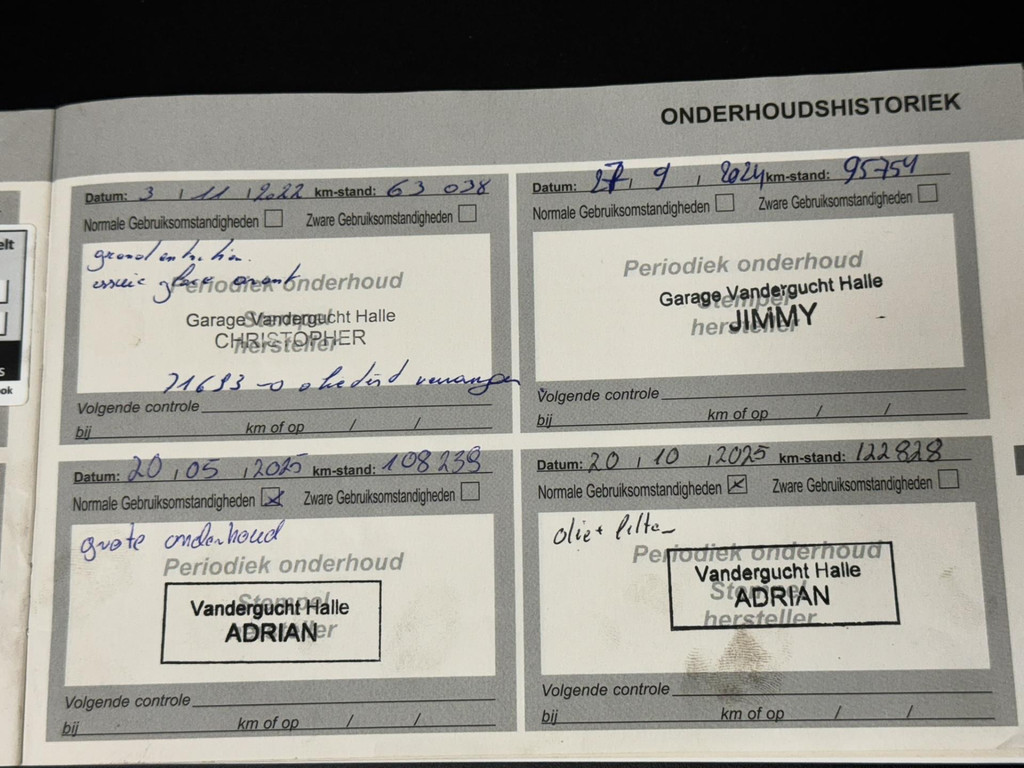 ONDERHOUDSHISTORIEK
Datum: 3 / 11 / 2022 km-stand: 63 038
Normale Gebruiksomstandigheden Zware Gebruiksomstandigheden
grand
essuie glace avant
Periodiek onderhoud
Stempel
hersteller
Garage Vandergucht Halle
CHRISTOPHER
71693
Volgende controle
bij km of op / /
Datum: 27 / 9 / 2024 km-stand: 95754
Normale Gebruiksomstandigheden Zware Gebruiksomstandigheden
Periodiek onderhoud
Stempel
hersteller
Garage Vandergucht Halle
JIMMY
Volgende controle
bij km of op / /
Datum: 20 / 05 / 2025 km-stand: 108239
Normale Gebruiksomstandigheden Zware Gebruiksomstandigheden
grote onderhoud
Periodiek onderhoud
Stempel
hersteller
Vandergucht Halle
ADRIAN
Volgende controle
bij km of op / /
Datum: 20 / 10 / 2025 km-stand: 122828
Normale Gebruiksomstandigheden Zware Gebruiksomstandigheden
olie + filter
Periodiek onderhoud
Stempel
hersteller
Vandergucht Halle
ADRIAN
Volgende controle
bij km of op / /